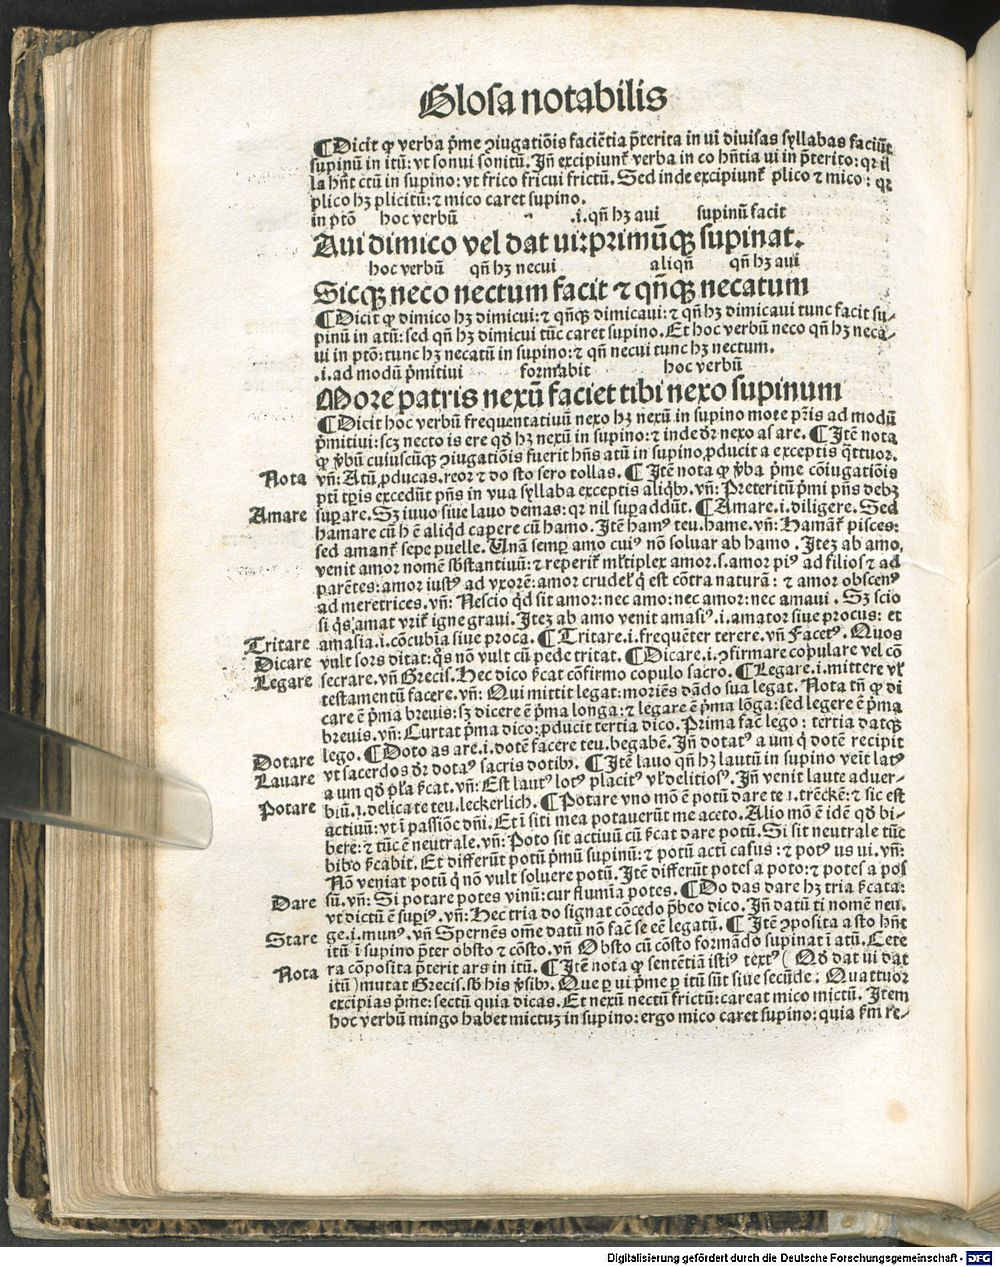 Glosa notabilis
¶ Dicit ꝙ verba p̄me ↄiugatiōis faciētia p̄terita in ui diuisas syllabas faciūt
supinū in itū: vt sonui sonitū. Jn̄ excipiunt̄ verba in co hn̄tia ui in p̄terito: qꝛ il
la hn̄t ctū in supino: vt frico fricui frictū. Sed inde excipiunt̄ plico ⁊ mico: qꝛ
plico hꝫ plicitū: ⁊ mico caret supino.
in ptō hoc verbū .i. qn̄ hꝫ aui supinū facit
Aui dimico vel dat ui: primūqꝫ supinat.
hoc verbū qn̄ hꝫ necui aliqn̄ qn̄ hꝫ aui
Sicqꝫ neco nectum facit ⁊ qn̄qꝫ necatum
¶ Dicit ꝙ dimico hꝫ dimicui: ⁊ qn̄qꝫ dimicaui: ⁊ qn̄ hꝫ dimicaui tunc facit su-
pinū in atū: sed qn̄ hꝫ dimicui tūc caret supino. Et hoc verbū neco qn̄ hꝫ neca-
ui in ptō: tunc hꝫ necatū in supino: ⁊ qn̄ necui tunc hꝫ nectum.
.i. ad modū p̄mitiui formabit hoc verbū
More patris nexū faciet tibi nexo supinum
¶ Dicit hoc verbū frequentatiuū nexo hꝫ nexū in supino more pr̄is ad modū
p̄mitiui: scꝫ necto is ere qd̄ hꝫ nexū in supino: ⁊ inde dr̄ nexo as are. ¶ Jtē nota
ꝙ v̄bū cuiuscūqꝫ ↄiugatiōis fuerit hn̄s atū in supino ꝓducit a exceptis q̄ttuor.
Nota vn̄: Atū ꝓducas. reor ⁊ do sto sero tollas. ¶ Jtē nota ꝙ v̄ba p̄me cōiugatiōis
pti tp̄is excedūt pn̄s in vna syllaba exceptis aliqbꝰ. vn̄: Preteritū p̄mi pn̄s debꝫ
Amare suꝑare. Sꝫ iuuo siue lauo demas: qꝛ nil suꝑaddūt. ¶ Amare .i. diligere. Sed
hamare cū h ē aliqd capere cū hamo. Jtē hamꝰ teu. hame. vn̄: Hamāt̄ pisces:
sed amant̄ sepe puelle. Unā semꝑ amo cuiꝰ nō soluar ab hamo. Jteꝫ ab amo.
venit amor nomē sb̄stantiuū: ⁊ reperit̄ ml̄tiplex amor .s. amor piꝰ ad filios ⁊ ad
parētes: amor iustꝰ ad vxorē: amor crudel̕ q̇ est cōtra naturā: ⁊ amor obscenꝰ
ad meretrices. vn̄: Nescio qd̄ sit amor: nec amo: nec amor: nec amaui. Sꝫ scio
si qs̄ amat vrit̄ igne graui. Jteꝫ ab amo venit amasiꝰ .i. amator siue procus: et
amasia .i. cōcubīa siue proca. ¶ Tritare .i. frequēter terere. vn̄ Facetꝰ. Quos
Tritare
Dicare vult sors ditat: q̄s nō vult cū pede tritat. ¶ Dicare .i. ↄfirmare copulare vel cō
Legare secrare. vn̄ Grecis. Hec dico s̄cat cōfirmo copulo sacro. ¶ Legare .i. mittere vl̕
testamentū facere. vn̄: Qui mittit legat: moriēs dādo sua legat. Nota tn̄ ꝙ di
care ē p̄ma breuis: sꝫ dicere ē p̄ma longa: ⁊ legare ē p̄ma lōga: sed legere ē p̄ma
breuis. vn̄: Curtat p̄ma dico: ꝓducit tertia dico. Prima fac lego: tertia datqꝫ
Dotare lego. ¶ Doto as are .i. dotē facere teu. begabē. Jn̄ dotatꝰ a um q̇ dotē recipit
Lauare vt sacerdos dr̄ dotaꝰ sacris dotibꝰ. ¶ Jtē lauo qn̄ hꝫ lautū in supino veīt latꝰ
a um qd̄ pl̄a s̄cat. vn̄: Est lautꝰ lotꝰ placitꝰ vl̕ delitiosꝰ. Jn̄ venit laute aduer-
Potare biū .i. delicate teu. leckerlich. ¶ Potare vno mō ē potū dare te .i. trēckē: ⁊ sic est
actiuū: vt ī passiōe dn̄i. Et ī siti mea potauerūt me aceto. Alio mō ē idē qd̄ bi-
bere: ⁊ tūc ē neutrale. vn̄: Poto sit actiuū cū s̄cat dare potū. Si sit neutrale tūc
bibo s̄cabit. Et differūt potū p̄mū supinū: ⁊ potū acti casus: ⁊ potꝰ us ui. vn̄:
Nō veniat potū q̇ nō vult soluere potū. Jtē differūt potes a poto: ⁊ potes a pos
Dare sū. vn̄: Si potare potes vinū: cur flumīa potes. ¶ Do das dare hꝫ tria s̄cata:
vt dictū ē supiꝰ. vn̄: Hec tria do signat cōcedo p̄beo dico. Jn̄ datū ti nomē neu.
Stare ge. i. munꝰ. vn̄ Spernēs om̄e datū nō fac̄ se eē legatū. ¶ Jtē ↄposita a sto hn̄t
itū ī supino p̄ter obsto ⁊ cōsto. vn̄ Obsto cū cōsto formādo supinat ī atū. Cete
Nota ra cōposita p̄terit ars in itū. ¶ Jtē nota ꝙ sentētiā istiꝰ textꝰ (Qd̄ dat ui dat
itū) mutat Grecis. sb̄ his v̄sibꝰ. Que ꝑ ui p̄me ꝑ itū sūt siue secūde. Quattuor
excipias p̄me: sectū quia dicas. Et nexū nectū frictū: careat mico mictū. Jtem
hoc verbū mingo habet mictuꝫ in supino: ergo mico caret supino: quia s̄m re-
Digitalisierung gefördert durch die Deutsche Forschungsgemeinschaft - DFG